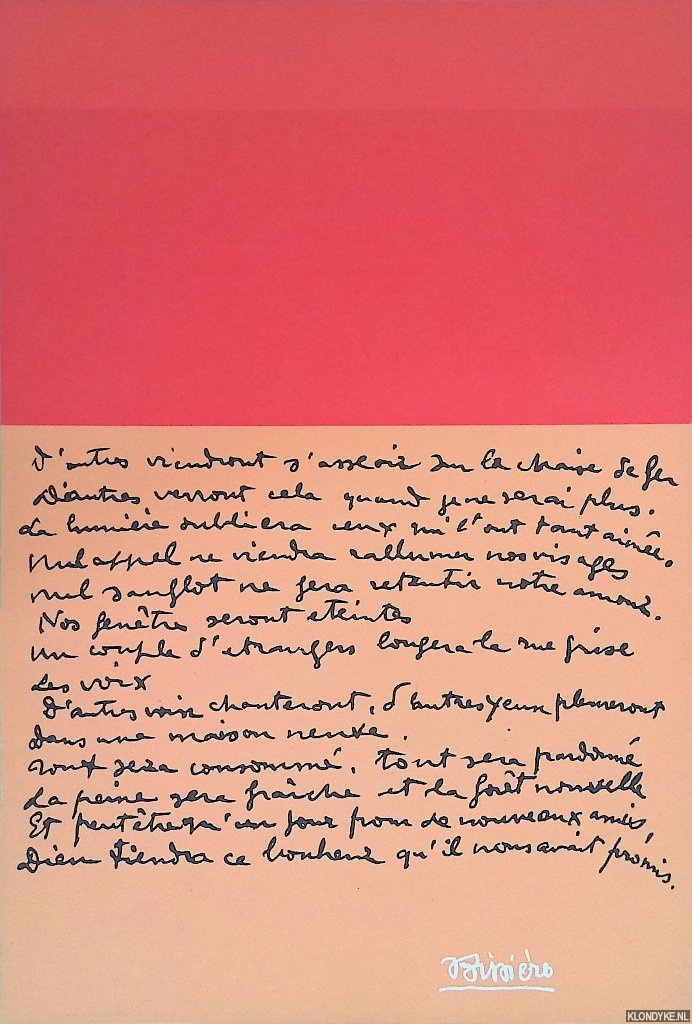 D'autres viendront s'asseoir sur la chaise de fer
D'autres verront cela quand je ne serai plus.
La lumière oubliera ceux qui l'ont tant aimée.
Nul appel ne viendra rallumer nos visages
nul sanglot ne fera retentir notre amour.
Nos fenêtres seront eteintes
un couple d'etrangers longera la rue grise
Les voix
D'autres voix chanteront, d'autres yeux pleureront
Dans une maison neuve.
tout sera consommé, tout sera pardonné
La peine sera fraîche et la forêt nouvelle
Et peut être qu'un jour pour de nouveaux amis,
Dieu tiendra ce bonheur qu'il nous avait promis.
Bissière
KLONDYKE.NL